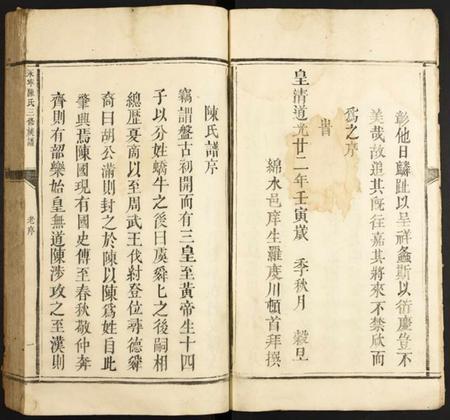 彰他日麟趾以呈祥螽斯以衍慶豈不
美哉故追其既往嘉其將來不禁欣而
爲之序
皇清道光廿二年壬寅歲 季秋月 穀旦
綿水邑庠生羅度川頓首拜撰
陳氏譜序
竊謂盤古初開而有三皇至黃帝生十四
子以分姓蟜牛之後曰虞舜七之後嗣相
總歷夏商以至周武王伐紂登位尋德舜
裔曰胡公滿則封之於陳以陳爲姓自此
肇興焉陳國現有國史傳至春秋敬仲奔
齊則有韶樂始皇無道陳涉攻之至漢則
陳氏三修族譜
老序
一